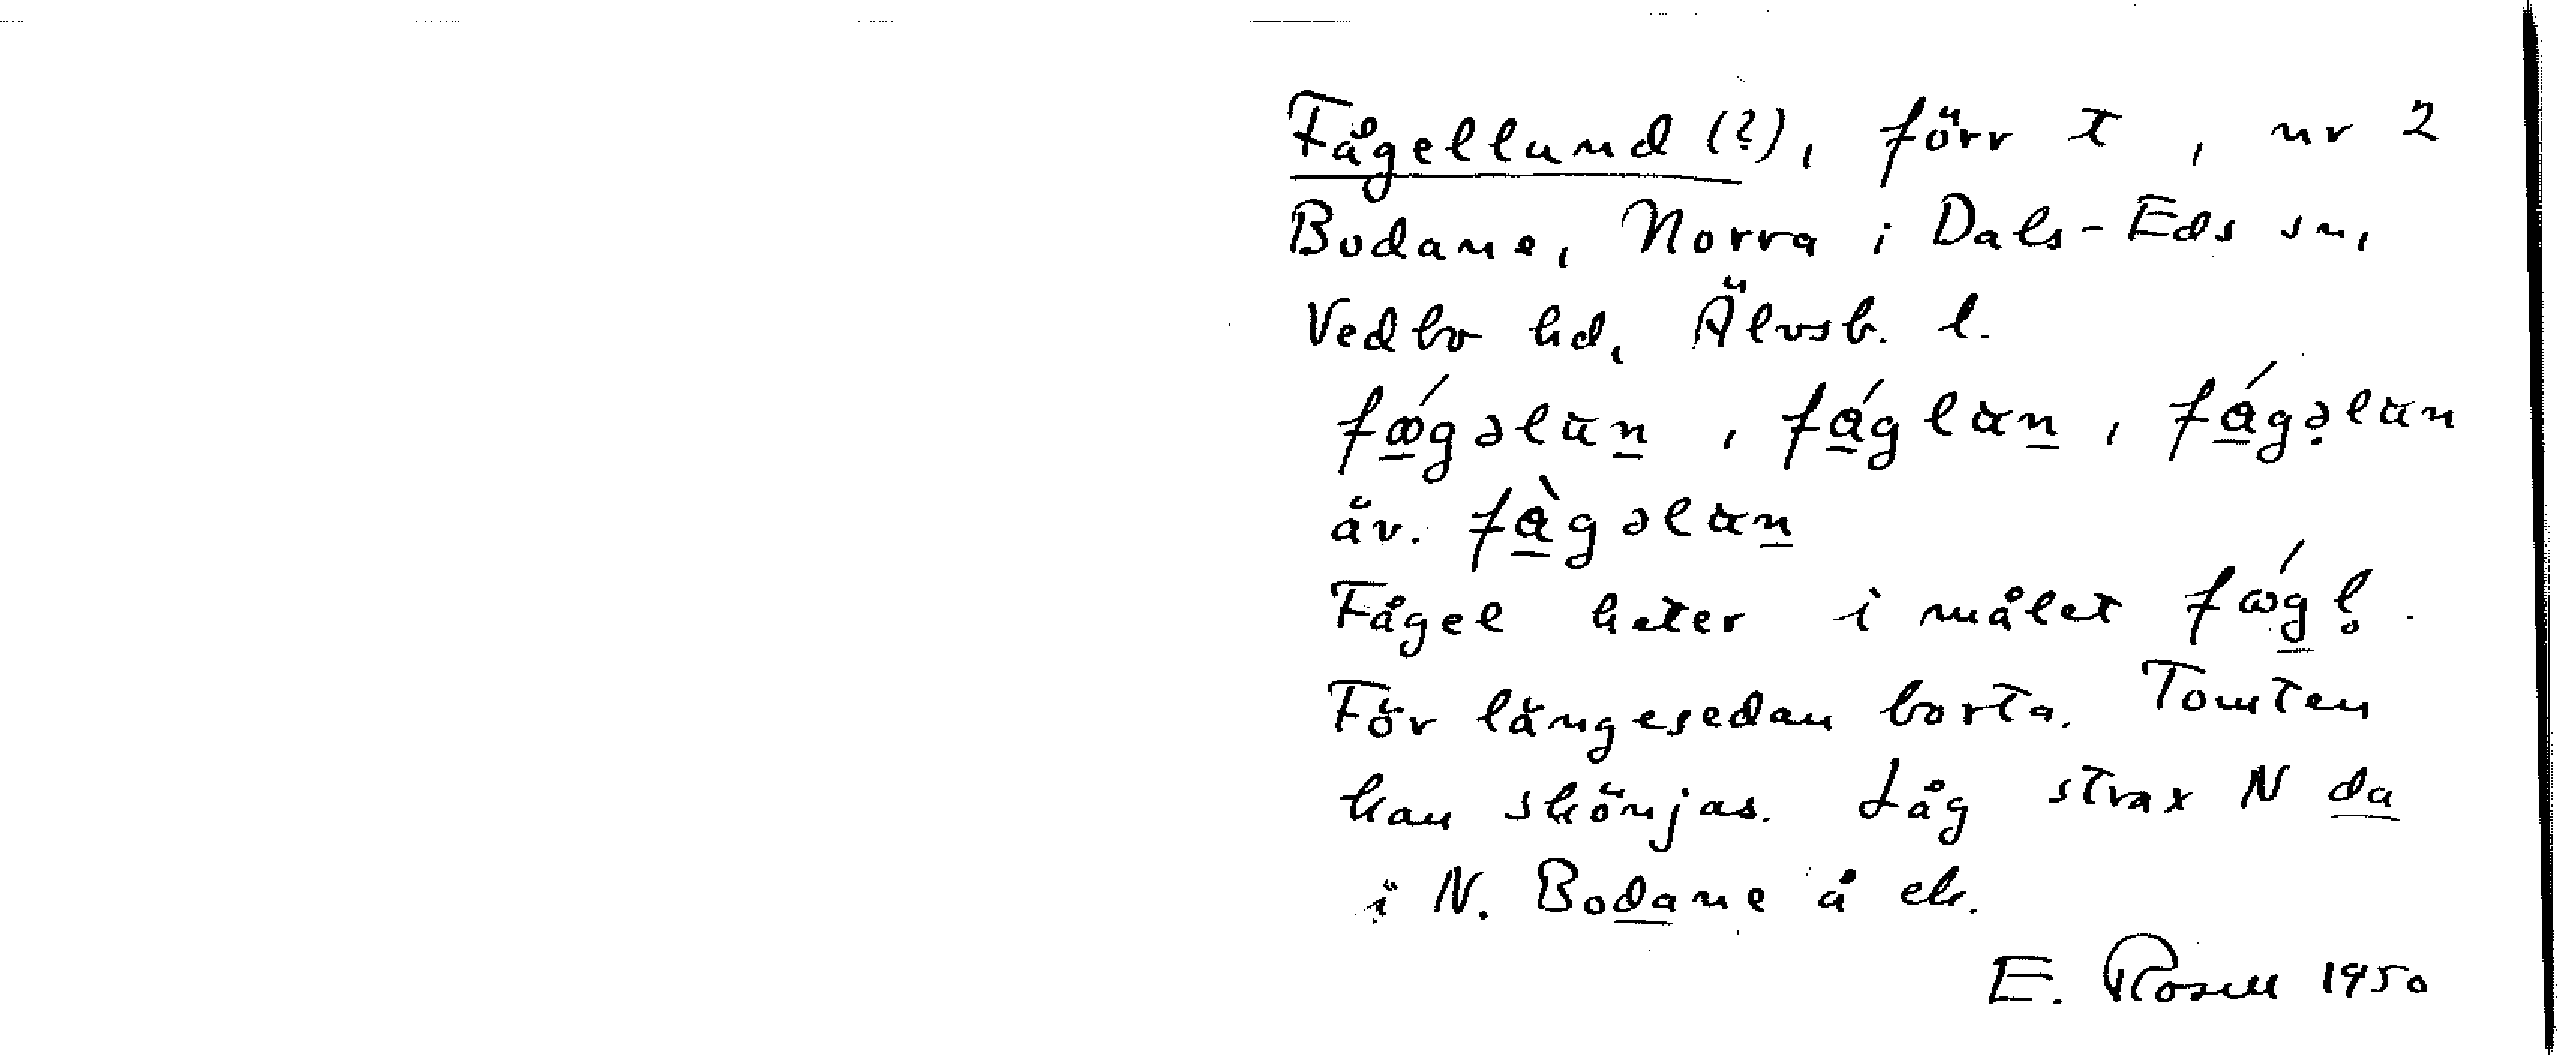 Fågellund (?), förr t, nr 2
Bodane, Norra i Dals-Eds sn,
Vedbo hd, Älvsb. l.
fǿgəlun, fáglun, fágəlun
äv. fàgəlun
Fågel heter i målet fógl̥.
För längesedan borta. Tomten
kan skönjas. Låg strax N da
i N. Bodane å ek.
E. Rosell 1950